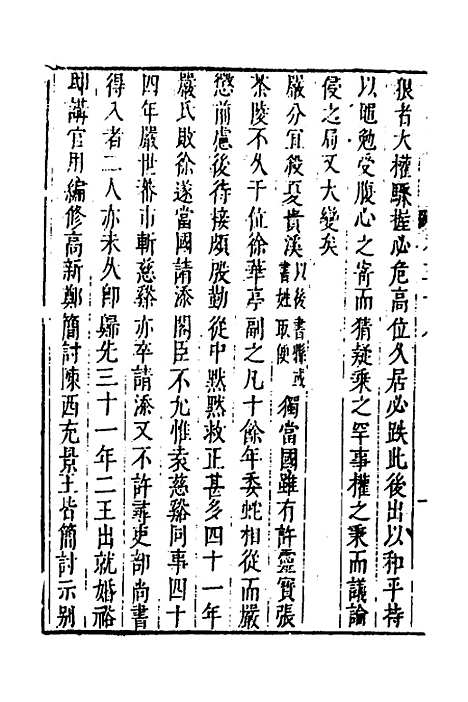 狠者大權驟握必危高位久居必跌此後出以和平持
以黽勉受腹心之寄而猜疑乘之罕事權之秉而議論
侵之局又大變矣
嚴分宜殺夏貴溪以後書縣或書姓取便獨當國雖有許靈寳張
茶陵不久于位徐華亭副之凡十餘年委蛇相從而嚴
懲前慮後待接頗殷勤從中黙黙救正甚多四十一年
嚴氏敗徐遂當國請添閣臣不允惟袁慈谿同事四十
四年嚴世蕃市斬慈谿亦卒請添又不許尋吏部尚書
得入者二人亦未久卽歸先三十一年二王出就婚裕
邸講官用編修高新鄭簡討陳西充景王皆簡討示别